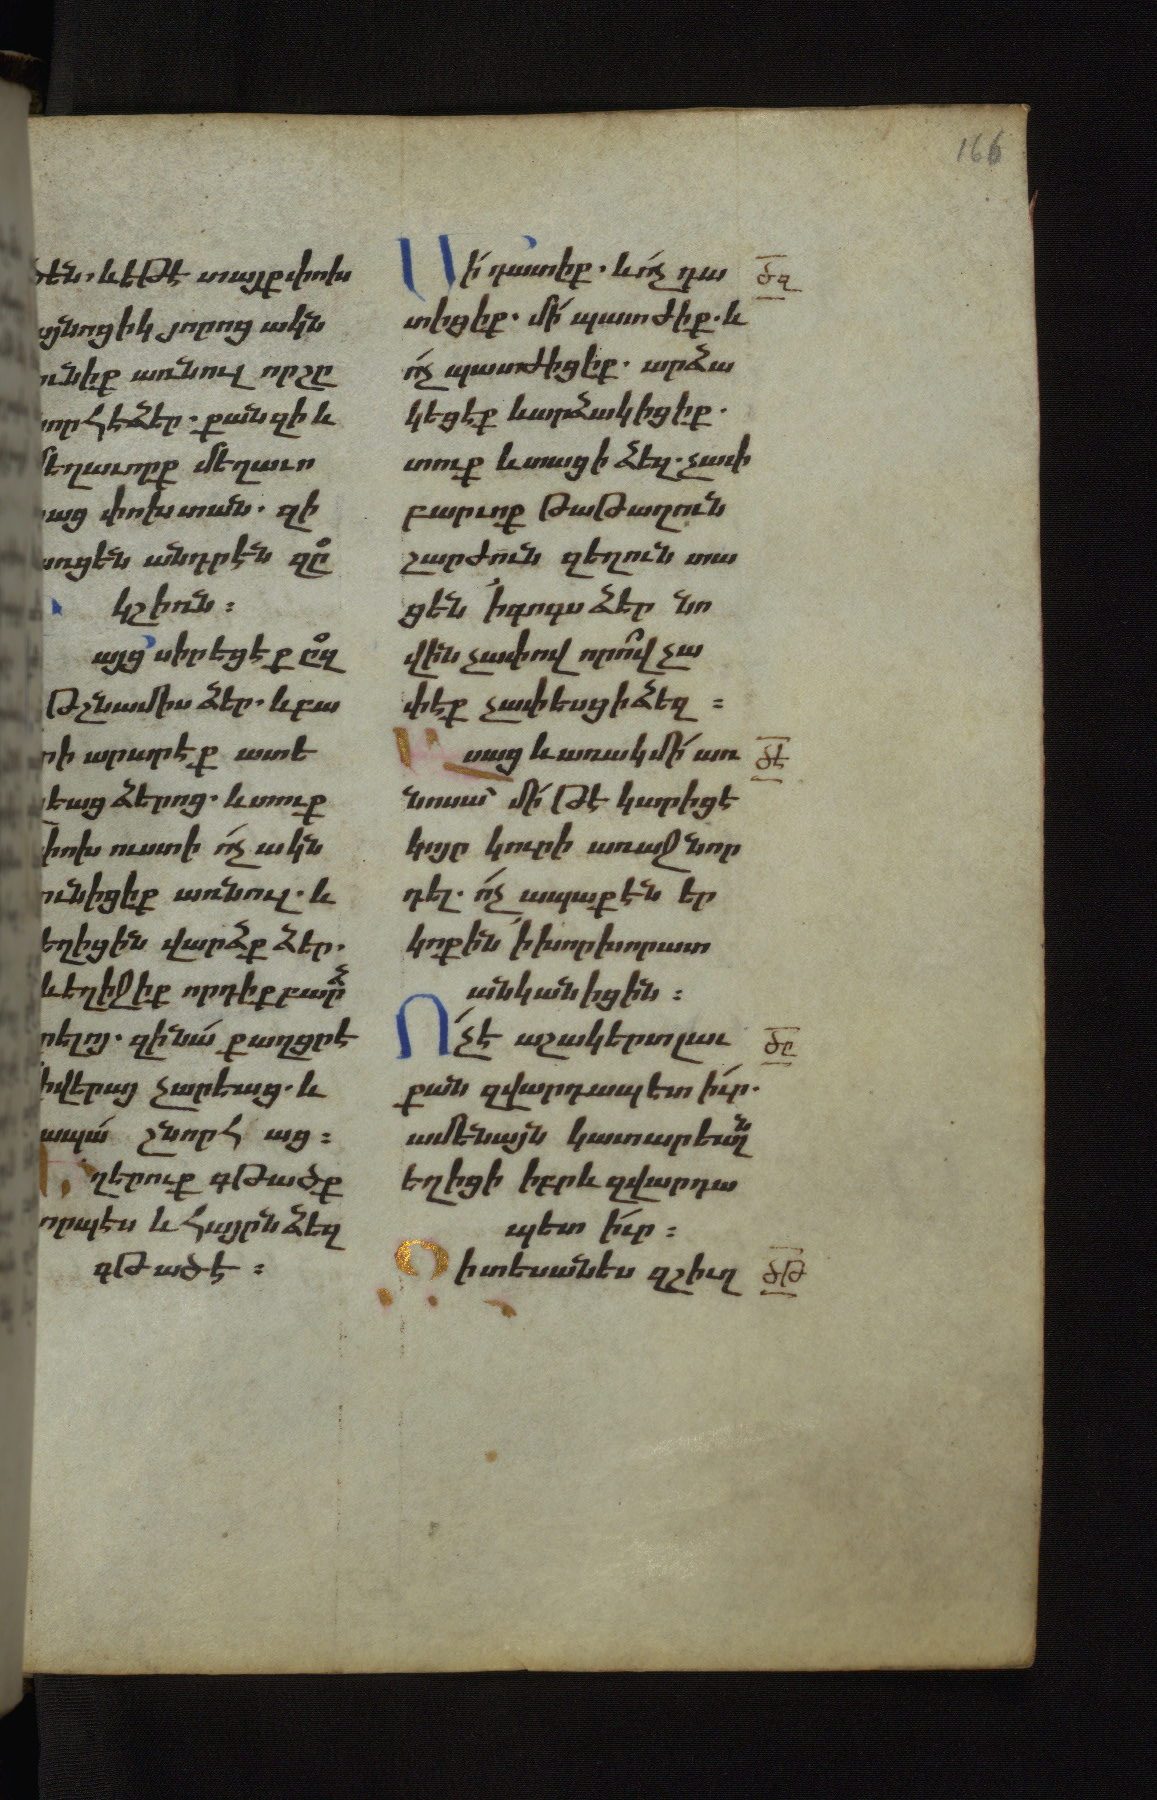 166
ծեն. և եթէ տայք փոխ
այնոցիկ յորոց ակն
ունիք առնուլ որ շը
նորհ է ձեր. քանզի և
մեղաւորք մեղաւո
րաց փոխ տան. զի
առցեն անդրէն զը
կշիռն։
այց սիրեցէք ըզ
թշնամիս ձեր. և բա
րի արարէք ատե
լեաց ձերոց. և տուք
փոխ ուստի ոչ ակն
ունիցիք առնուլ. և
եղիցին վարձք ձեր.
և եղիջիք որդիք բարձ
րելոյ. զի նա քաղցր է
ի վերայ չարեաց. և
ապա շնորհ աց։
Եղերուք գթածք
որպես և հայրն ձեզ
գթած է։
Մի դատիք. և ոչ դա
տիցիք. մի պատժիք. և
ոչ պատժիցիք. արձա
կեցէք և արձակիցիք.
տուք և տացի ձեզ. չափ
բարւոք թաթաղուն
շարժուն զեղուն տա
ցեն ի գոգս ձեր նո
վին չափով որով չա
փէք չափեսցի ձեզ։
Ասաց և առակ մի առ
նոսա՝ մի թէ կարիցէ
կոյր կուրի առաջնոր
դել. ոչ ապաքէն եր
կոքին ի խորխորատ
անկանիցին։
Ոչ է աշակերտ լաւ
քան զվարդապետ իւր.
ամենայն կատարեալն
եղիցի իբրև զվարդա
պետ իւր։
Զի տեսանես զշիւղ
ծզ
ծէ
ծը
ծթ